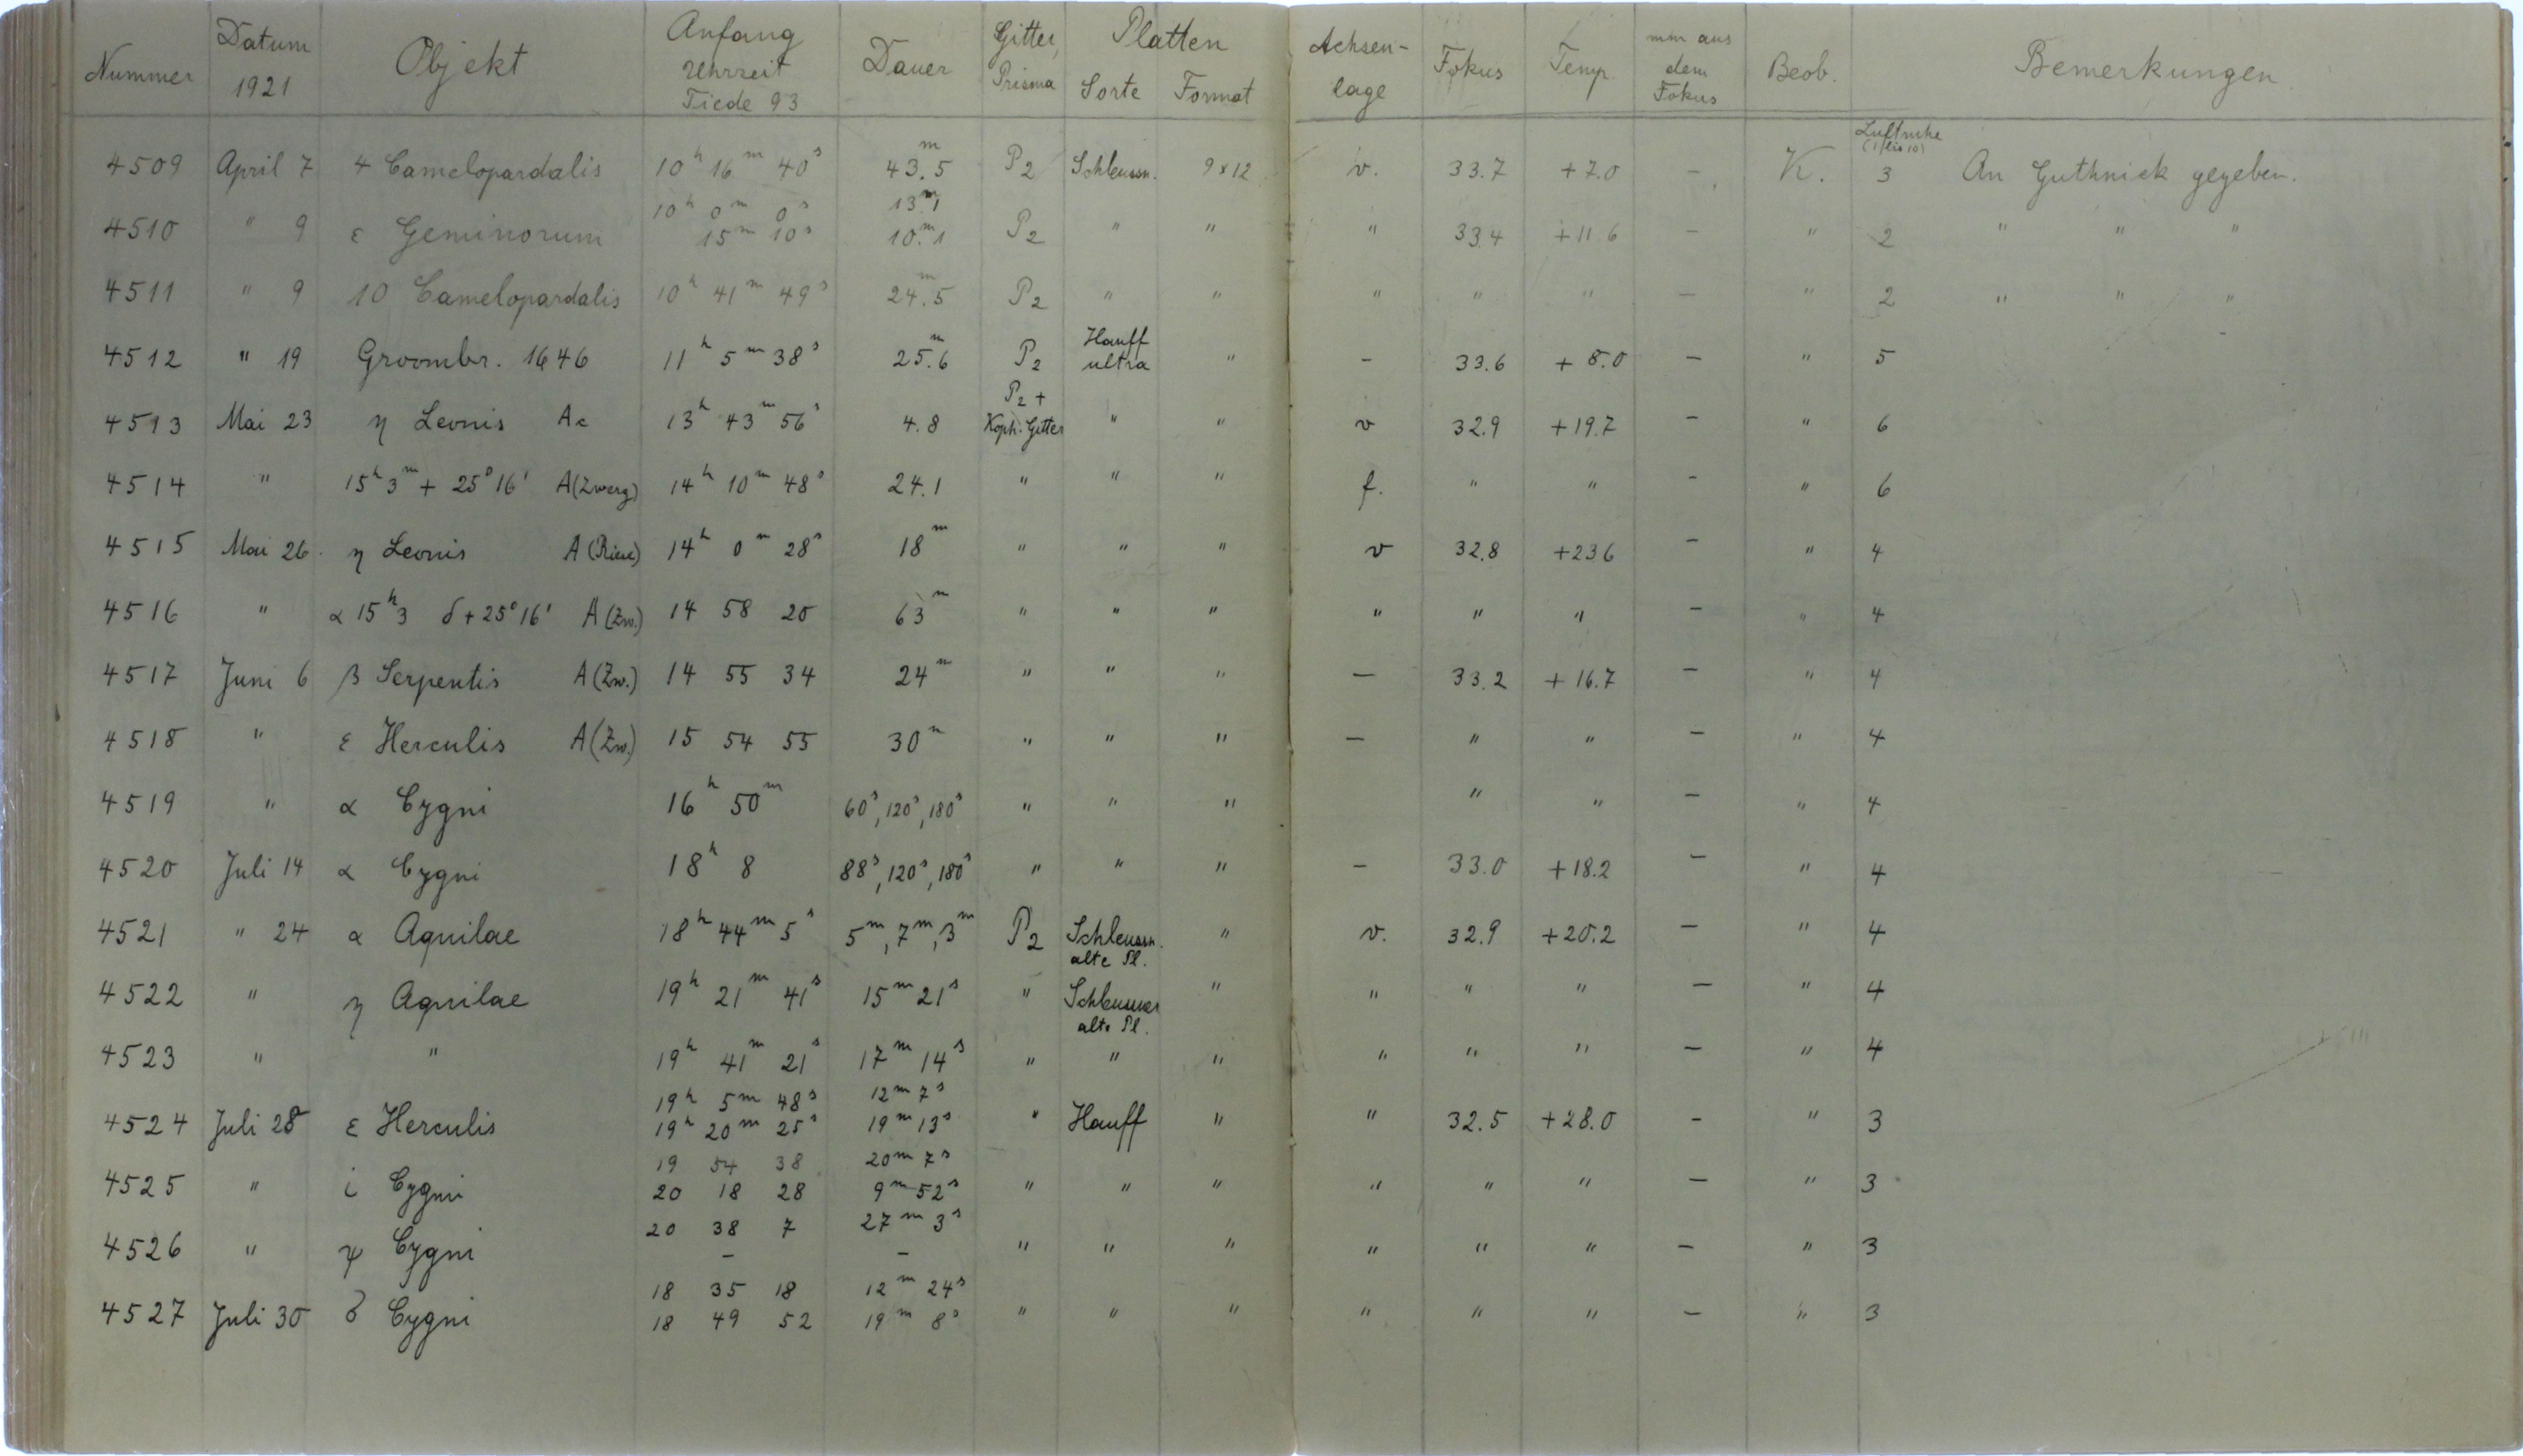 Nummer Datum 1921 Objekt Anfang Uhrzeit Tiede 93 Dauer Gitter, Prisma Platten Sorte Format Achsen-lage Fokus Temp. mm aus dem Fokus Beob. Bemerkungen
Luftruhe (1 bis 10)
4509 April 7 4 Camelopardalis 10h 16m 40s 43.5m P2 Schleussn. 9x12 v. 33.7 +7.0 - K. 3 An Guthnick gegeben.
10h 0m 0s 13m.1
4510 " 9 ε Geminorum 15m 10s 10m.1 P2 " " " 33.4 +11.6 - " 2 " " "
4511 " 9 10 Camelopardalis 10h 41m 49s 24.5m P2 " " " " " - " 2 " " "
4512 " 19 Groombr. 1646 11h 5m 38s 25.6m P2 Hauff ultra " - 33.6 +8.0 - " 5
4513 Mai 23 η Leonis Ac 13h 43m 56s 4.8 P2 + Koph. Gitter " " v 32.9 +19.7 - " 6
4514 " 15h 3m + 25° 16' A (Zwerg) 14h 10m 48s 24.1 " " " f. " " - " 6
4515 Mai 26. η Leonis A (Riese) 14h 0m 28s 18m " " " v 32.8 +23.6 - " 4
4516 " α 15h 3 δ + 25° 16' A (Zw.) 14 58 20 63m " " " " " " - " 4
4517 Juni 6 β Serpentis A (Zw.) 14 55 34 24m " " " - 33.2 +16.7 - " 4
4518 " ε Herculis A (Zw.) 15 54 55 30m " " " - " " - " 4
4519 " α Cygni 16h 50m 60s, 120s, 180s " " " " " - " 4
4520 Juli 14 α Cygni 18h 8 88s, 120s, 180s " " " - 33.0 +18.2 - " 4
4521 " 24 α Aquilae 18h 44m 5s 5m, 7m, 3m P2 Schleussn. alte Pl. " v. 32.9 +20.2 - " 4
4522 " η Aquilae 19h 21m 41s 15m 21s " Schleussner alte Pl. " " " " - " 4
4523 " " 19h 41m 21s 17m 14s " " " " " " - " 4
19h 5m 48s 12m 7s
4524 Juli 28 ε Herculis 19h 20m 25s 19m 13s " Hauff " " 32.5 +28.0 - " 3
19 54 38 20m 7s
4525 " i Cygni 20 18 28 9m 52s " " " " " " - " 3
20 38 7 27m 3s
4526 " ψ Cygni - - " " " " " " - " 3
18 35 18 12m 24s
4527 Juli 30 δ Cygni 18 49 52 19m 8s " " " " " " - " 3